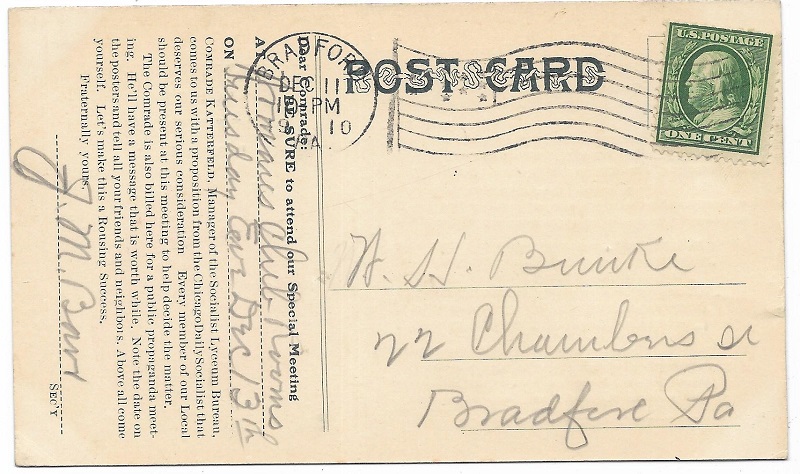 POST CARD
U.S. POSTAGE
ONE CENT
BRADFORD
DEC 11
PM
10
PA.
Dear Comrade:
BE SURE to attend our Special Meeting
AT Club Rooms
ON Tuesday Eve Dec 13th
COMRADE KATTERFELD, Manager of the Socialist Lyceum Bureau,
comes to us with a proposition from the Chicago Daily Socialist that
deserves our serious consideration Every member of our Local
should be present at this meeting to help decide the matter.
The Comrade is also billed here for a public propaganda meet-
ing. He'll have a message that is worth while. Note the date on
the posters and tell all your friends and neighbors. Above all come
yourself. Let's make this a Rousing Success.
Fraternally yours,
J. M.
SEC'Y
W. H. Bunke
22 Chambers st
Bradford Pa